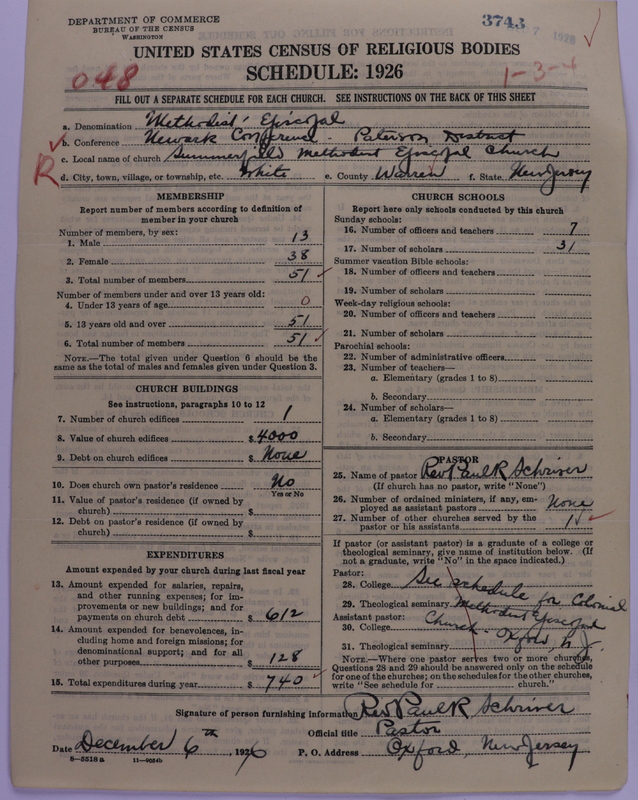 DEPARTMENT OF COMMERCE
BUREAU OF THE CENSUS
WASHINGTON
3743
7 1926
UNITED STATES CENSUS OF RELIGIOUS BODIES
SCHEDULE: 1926
048
1-3-4
FILL OUT A SEPARATE SCHEDULE FOR EACH CHURCH. SEE INSTRUCTIONS ON THE BACK OF THIS SHEET
a. Denomination Methodist Episcopal
b. Conference Newark Conference - Paterson District
R
c. Local name of church Summerfield Methodist Episcopal Church
d. City, town, village, or township, etc. White e. County Warren f. State New Jersey
MEMBERSHIP
Report number of members according to definition of member in your church
Number of members, by sex:
1. Male 13
2. Female 38
3. Total number of members 51
Number of members under and over 13 years old:
4. Under 13 years of age 0
5. 13 years old and over 51
6. Total number of members 51
NOTE.—The total given under Question 6 should be
same as the total of males and females given under Question 3.
CHURCH BUILDINGS
See instructions, paragraphs 10 to 12
7. Number of church edifices 1
8. Value of church edifices $ 4000
9. Debt on church edifices $ None
10. Does church own pastor's residence No
Yes or No
11. Value of pastor's residence (if owned by
church) $
12. Debt on pastor's residence (if owned by
church) $
EXPENDITURES
Amount expended by your church during last fiscal year
13. Amount expended for salaries, repairs,
and other running expenses; for im-
provements or new buildings; and for
payments on church debt $ 612
14. Amount expended for benevolences, in-
cluding home and foreign missions; for
denominational support; and for all
other purposes $ 128
15. Total expenditures during year $ 740
CHURCH SCHOOLS
Report here only schools conducted by this church
Sunday schools:
16. Number of officers and teachers 7
17. Number of scholars 31
Summer vacation Bible schools:
18. Number of officers and teachers
19. Number of scholars
Week-day religious schools:
20. Number of officers and teachers
21. Number of scholars
Parochial schools:
22. Number of administrative officers
23. Number of teachers—
a. Elementary (grades 1 to 8)
b. Secondary
24. Number of scholars—
a. Elementary (grades 1 to 8)
b. Secondary
PASTOR
25. Name of pastor Rev Paul R Schriver
(If church has no pastor, write "None")
26. Number of ordained ministers, if any, em-
ployed as assistant pastors None
27. Number of other churches served by the
pastor or his assistants
If pastor (or assistant pastor) is a graduate of a college or
theological seminary, give name of institution below. (If
not a graduate, write "No" in the space indicated.)
Pastor:
28. College See schedule for Colonial
29. Theological seminary Methodist Episcopal
Assistant pastor:
30. College Church - Oxford, N. J.
31. Theological seminary
NOTE.—Where one pastor serves two or more churches,
Questions 28 and 29 should be answered only on the schedule
for one of the churches; on the schedules for the other churches,
write "See schedule for church."
Signature of person furnishing information Rev Paul R Schriver
Official title Pastor
Date December 6th, 1926 P. O. Address Oxford, New Jersey
8—5518a 11—9054b